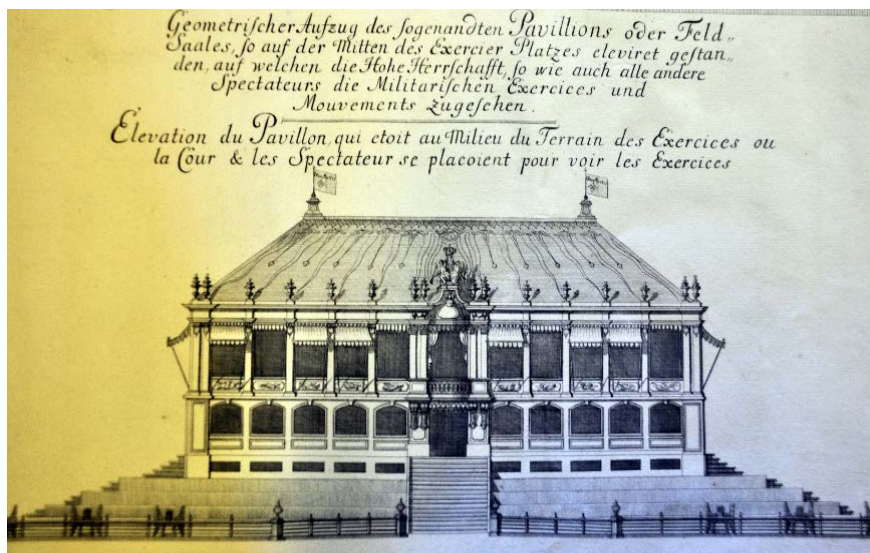 Geometrischer Aufzug des sogenandten Pavillions oder Feld„
Saales, so auf der Mitten des Exercier Platzes eleviret gestan„
den, auf welchen die Hohe Herrschafft, so wie auch alle andere
Spectateurs die Militarischen Exercices und
Mouvements zugesehen.
Elevation du Pavillon, qui etoit au Milieu du Terrain des Exercices ou
la Côur & les Spectateur se placoient pour voir les Exercices